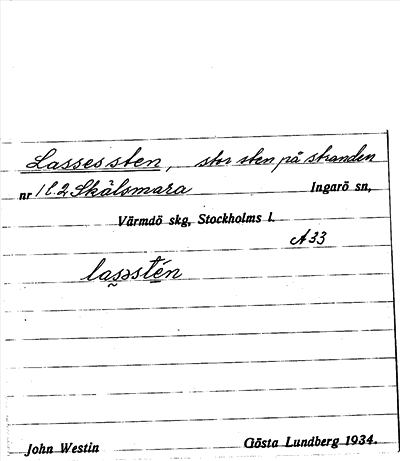 Lassessten, stor sten på stranden
nr 1 l.2 Skälsmara Ingarö sn,
Värmdö skg, Stockholms l.
A 33
lasəstén
John Westin Gösta Lundberg 1934.